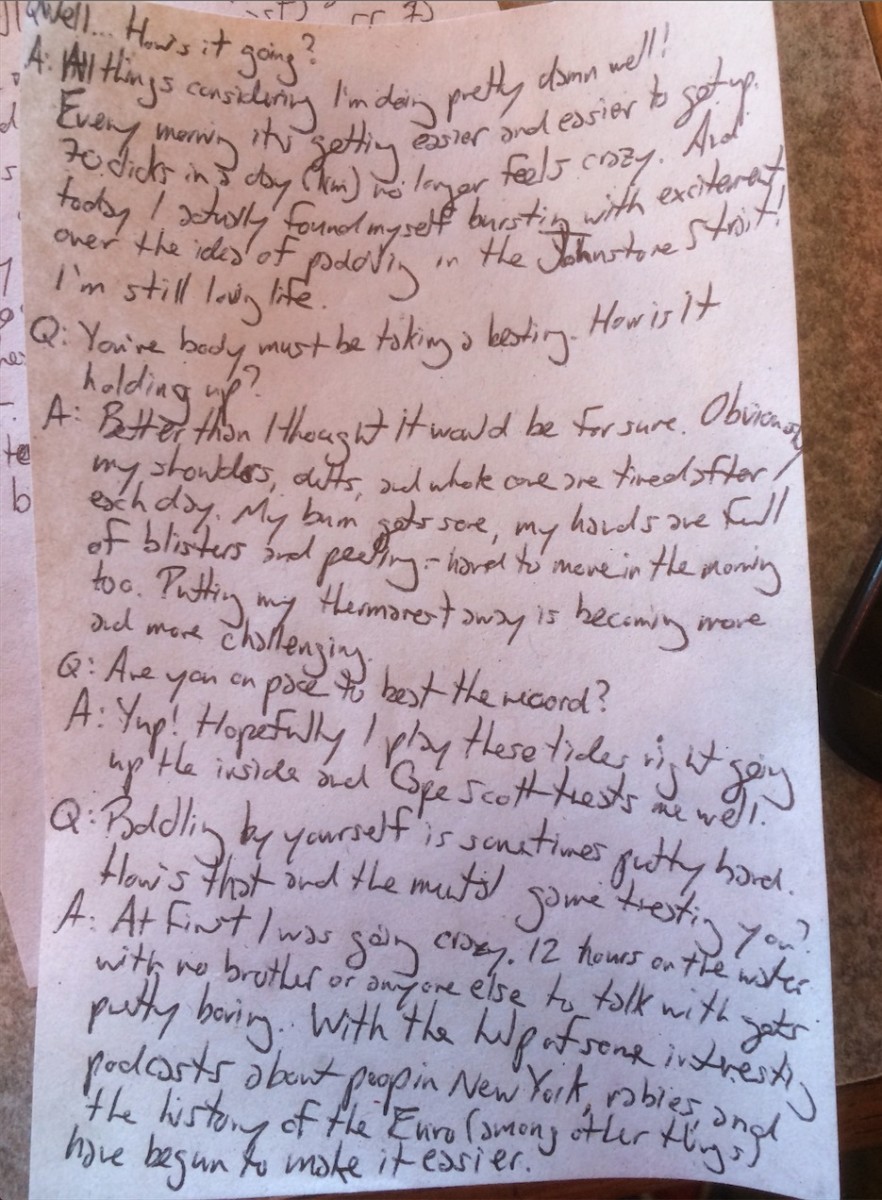 Q Well... How's it going?
A: All things considering I'm doing pretty damn well!
Every morning it's getting easier and easier to get up.
70 clicks in a day (km) no longer feels crazy. And
today I actually found myself bursting with excitement
over the idea of paddling in the Johnstone Strait!
I'm still loving life.
Q: You're body must be taking a beating. How is it
holding up?
A: Better than I thought it would be for sure. Obviously
my shoulders, delts, and whole core are tired after
each day. My bum gets sore, my hands are full
of blisters and peeling - hard to move in the morning
too. Putting my thermarest away is becoming more
and more challenging.
Q: Are you on pace to beat the record?
A: Yup! Hopefully I play these tides right going
up the inside and Cape Scott treats me well.
Q: Paddling by yourself is sometimes pretty hard.
How's that and the mental game treating you?
A: At first I was going crazy. 12 hours on the water
with no brother or anyone else to talk with gets
pretty boring. With the help of some interesting
podcasts about poop in New York, rabies, and
the history of the Euro (among other things)
have begun to make it easier.